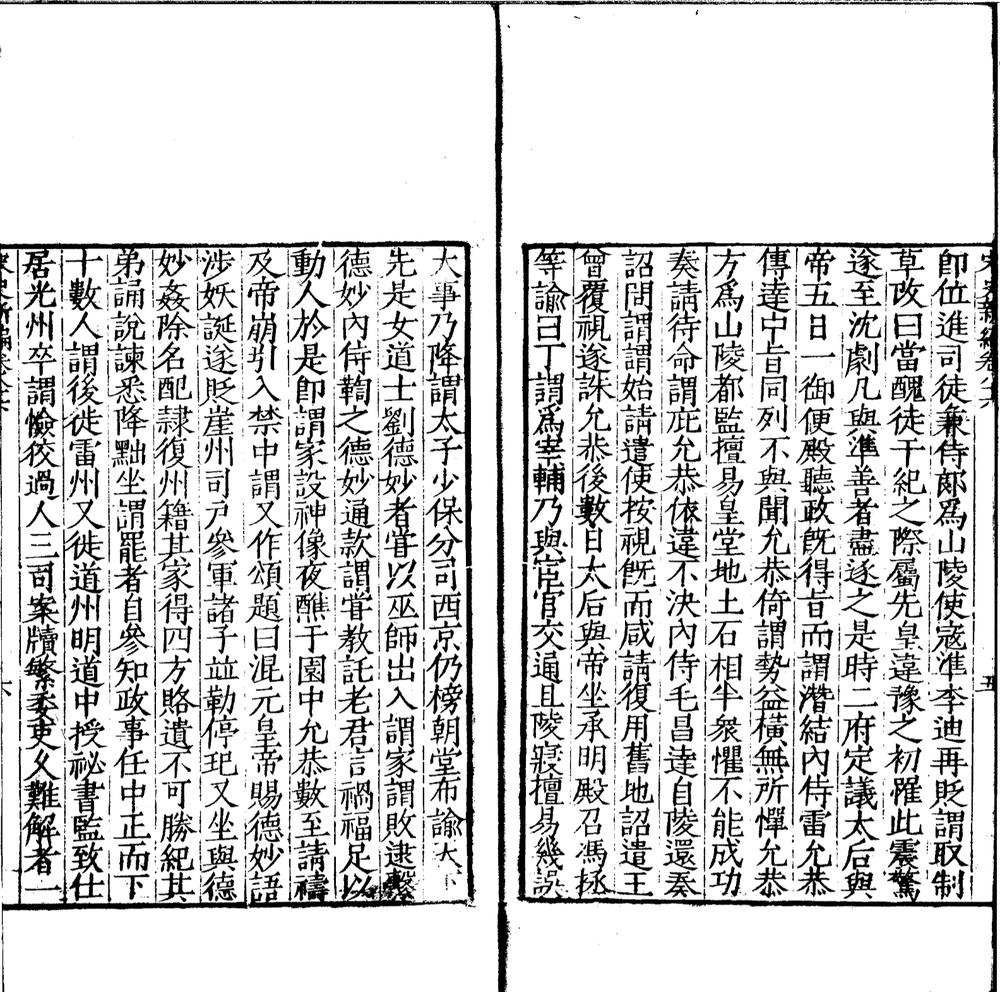 宋史新編卷八十六
五
卽位進司徒兼侍郞爲山陵使寇準李迪再貶謂取制
草改曰當醜徒干紀之際屬先皇違豫之初罹此震驚
遂至沈劇凡與準善者盡逐之是時二府定議太后與
帝五日一御便殿聽政旣得旨而謂潛結內侍雷允恭
傳達中旨同列不與聞允恭倚謂勢益橫無所憚允恭
方爲山陵都監擅易皇堂地土石相半衆懼不能成功
奏請待命謂庇允恭依違不決內侍毛昌達自陵還奏
詔問謂謂始請遣使按視旣而咸請復用舊地詔遣王
曾覆視遂誅允恭後數日太后與帝坐承明殿召馮拯
等諭曰丁謂爲宰輔乃與宦官交通且陵寢擅易幾誤
大事乃降謂太子少保分司西京仍榜朝堂布諭天下
先是女道士劉德妙者嘗以巫師出入謂家謂敗逮繫
德妙內侍鞫之德妙通款謂嘗教託老君言禍福足以
動人於是卽謂家設神像夜醮于園中允恭數至請禱
及帝崩引入禁中謂又作頌題曰混元皇帝賜德妙語
涉妖誕遂貶崖州司戶參軍諸子並勒停玘又坐與德
妙姦除名配隸復州籍其家得四方賂遺不可勝紀其
弟誦說諫悉降黜坐謂罷者自參知政事任中正而下
十數人謂後徙雷州又徙道州明道中授祕書監致仕
居光州卒謂憸狡過人三司案牘繁委吏久難解者一
六